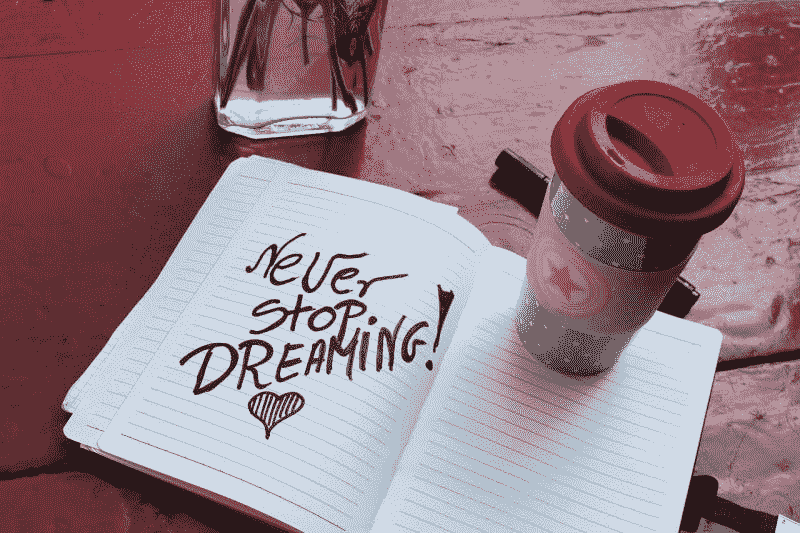 Never
stop.
DREAMiNG!